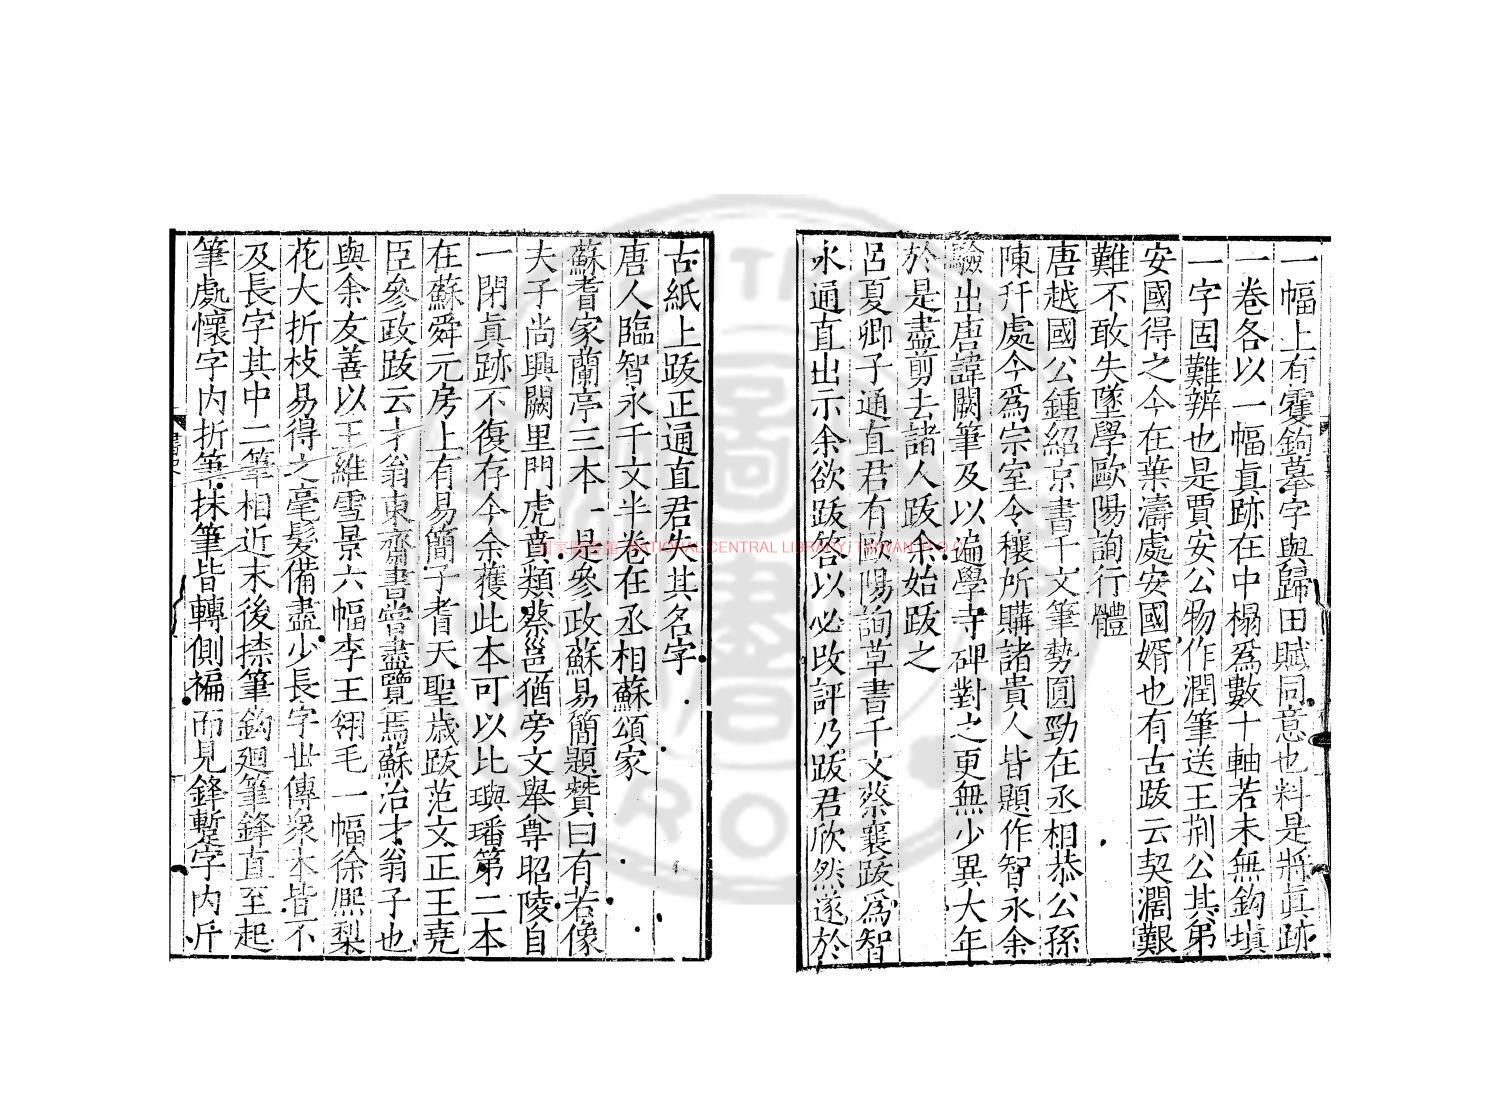 一幅上有雙鉤摹字與歸田賦同意也料是將真跡
一卷各以一幅真跡在中榻為數十軸若未無鉤填
一字固難辨也是賈安公物作潤筆送王荊公其弟
安國得之今在葉濤處安國婿也有古跋云契濶艱
難不敢失墜學歐陽詢行體
唐越國公鍾紹京書千文筆勢圓勁在丞相恭公孫
陳開處今為宗室令穰所購諸貴人皆題作智永余
驗出唐諱闕筆及以遍學寺碑對之更無少異大年
於是盡剪去諸人跋余始跋之
呂夏卿子通直君有歐陽詢草書千文蔡襄跋為智
永通直出示余欲跋答以必改評乃跋君欣然遂於
古紙上跋正通直君失其名字
唐人臨智永千文半卷在丞相蘇頌家
蘇耆家蘭亭三本一是參政蘇易簡題贊曰有若像
夫子尚興闕里門虎賁類蔡邕猶旁文舉尊昭陵自
一閉真跡不復存今余獲此本可以比璵璠第二本
在蘇舜元房上有易簡子耆天聖歲跋范文正王堯
臣參政跋云才翁東齋書嘗盡覽焉蘇治才翁子也
與余友善以王維雪景六幅李王翎毛一幅徐熙梨
花大折枝易得之毫髮備盡少長字世傳眾本皆不
及長字其中二筆相近末後捺筆鈎廻筆鋒直至起
筆處懷字內折筆抹筆皆轉側褊而見鋒蹔字內斤
書史
國家圖書館 NATIONAL CENTRAL LIBRARY, TAIWAN, R.O.C.